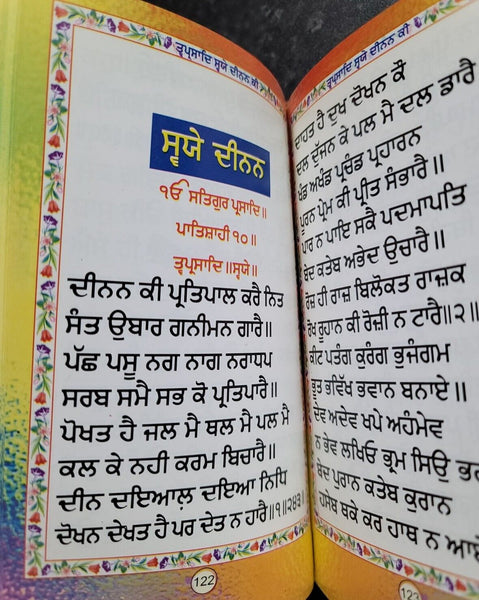 ਤ੍ਵਪ੍ਰਸਾਦਿ ਸ੍ਵਯੇ ਦੀਨਨ ਕੀ
ਸ੍ਵਯੇ ਦੀਨਨ
ੴ ਸਤਿਗੁਰ ਪ੍ਰਸਾਦਿ॥
ਪਾਤਿਸ਼ਾਹੀ ੧੦॥
ਤ੍ਵਪ੍ਰਸਾਦਿ॥ਸ੍ਵਯੇ॥
ਦੀਨਨ ਕੀ ਪ੍ਰਤਿਪਾਲ ਕਰੈ ਨਿਤ
ਸੰਤ ਉਬਾਰ ਗਨੀਮਨ ਗਾਰੈ॥
ਪੱਛ ਪਸੂ ਨਗ ਨਾਗ ਨਰਾਧਪ
ਸਰਬ ਸਮੈ ਸਭ ਕੋ ਪ੍ਰਤਿਪਾਰੈ॥
ਪੋਖਤ ਹੈ ਜਲ ਮੈ ਥਲ ਮੈ ਪਲ ਮੈ
ਕਲ ਕੇ ਨਹੀ ਕਰਮ ਬਿਚਾਰੈ॥
ਦੀਨ ਦਇਆਲ਼ ਦਇਆ ਨਿਧਿ
ਦੋਖਨ ਦੇਖਤ ਹੈ ਪਰ ਦੇਤ ਨ ਹਾਰੈ॥੧॥੨੪੩॥
122
ਤ੍ਵਪ੍ਰਸਾਦਿ ਸ੍ਵਯੇ ਦੀਨਨ ਕੀ
ਦਾਹਤ ਹੈ ਦੁਖ ਦੋਖਨ ਕੌ
ਦਲ ਦੁੱਜਨ ਕੇ ਪਲ ਮੈ ਦਲ ਡਾਰੈ
ਖੰਡ ਅਖੰਡ ਪ੍ਰਚੰਡ ਪ੍ਰਹਾਰਨ
ਪੂਰਨ ਪ੍ਰੇਮ ਕੀ ਪ੍ਰੀਤ ਸੰਭਾਰੈ॥
ਪਾਰ ਨ ਪਾਇ ਸਕੈ ਪਦਮਾਪਤਿ
ਬੇਦ ਕਤੇਬ ਅਭੇਦ ਉਚਾਰੈ॥
ਰੋਜ਼ ਹੀ ਰਾਜ਼ ਬਿਲੋਕਤ ਰਾਜ਼ਕ
ਰੋਖ ਰੂਹਾਨ ਕੀ ਰੋਜ਼ੀ ਨ ਟਾਰੈ॥੨॥
ਕੀਟ ਪਤੰਗ ਕੁਰੰਗ ਭੁਜੰਗਮ
ਭੂਤ ਭਵਿੱਖ ਭਵਾਨ ਬਨਾਏ॥
ਦੇਵ ਅਦੇਵ ਖਪੇ ਅਹੰਮੇਵ
ਨ ਭੇਵ ਲਖਿਓ ਭ੍ਰਮ ਸਿਉ
ਬੇਦ ਪੁਰਾਨ ਕਤੇਬ ਕੁਰਾਨ
ਹਸੇਬ ਥਕੇ ਕਰ ਹਾਥ ਨ
123